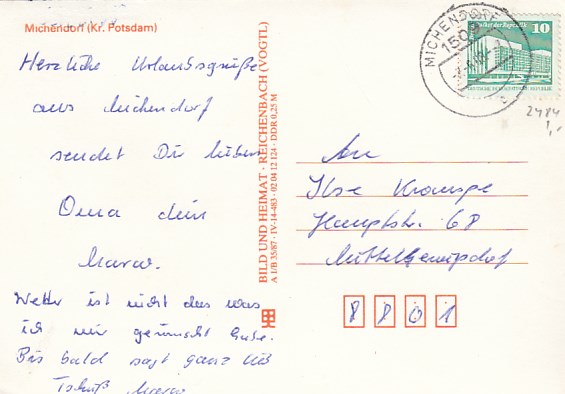 Michendorf (Kr. Potsdam)
Herzliche Urlaubsgrüße
aus Michendorf
sendet Dir lieber
Oma dein
Marco.
Wetter ist nicht das was
ich mir gewünscht habe.
Bis bald sagt ganz lieb
Tschüß Marco
BILD UND HEIMAT · REICHENBACH (VOGTL)
A 1/B 35/87 · IV-14-483 · 02 04 12 124 · DDR 0,25 M
MICHENDORF
1509
Palast der Republik 10
2484
1,-
An
Ilse Krampe
Hauptstr. 68
8801